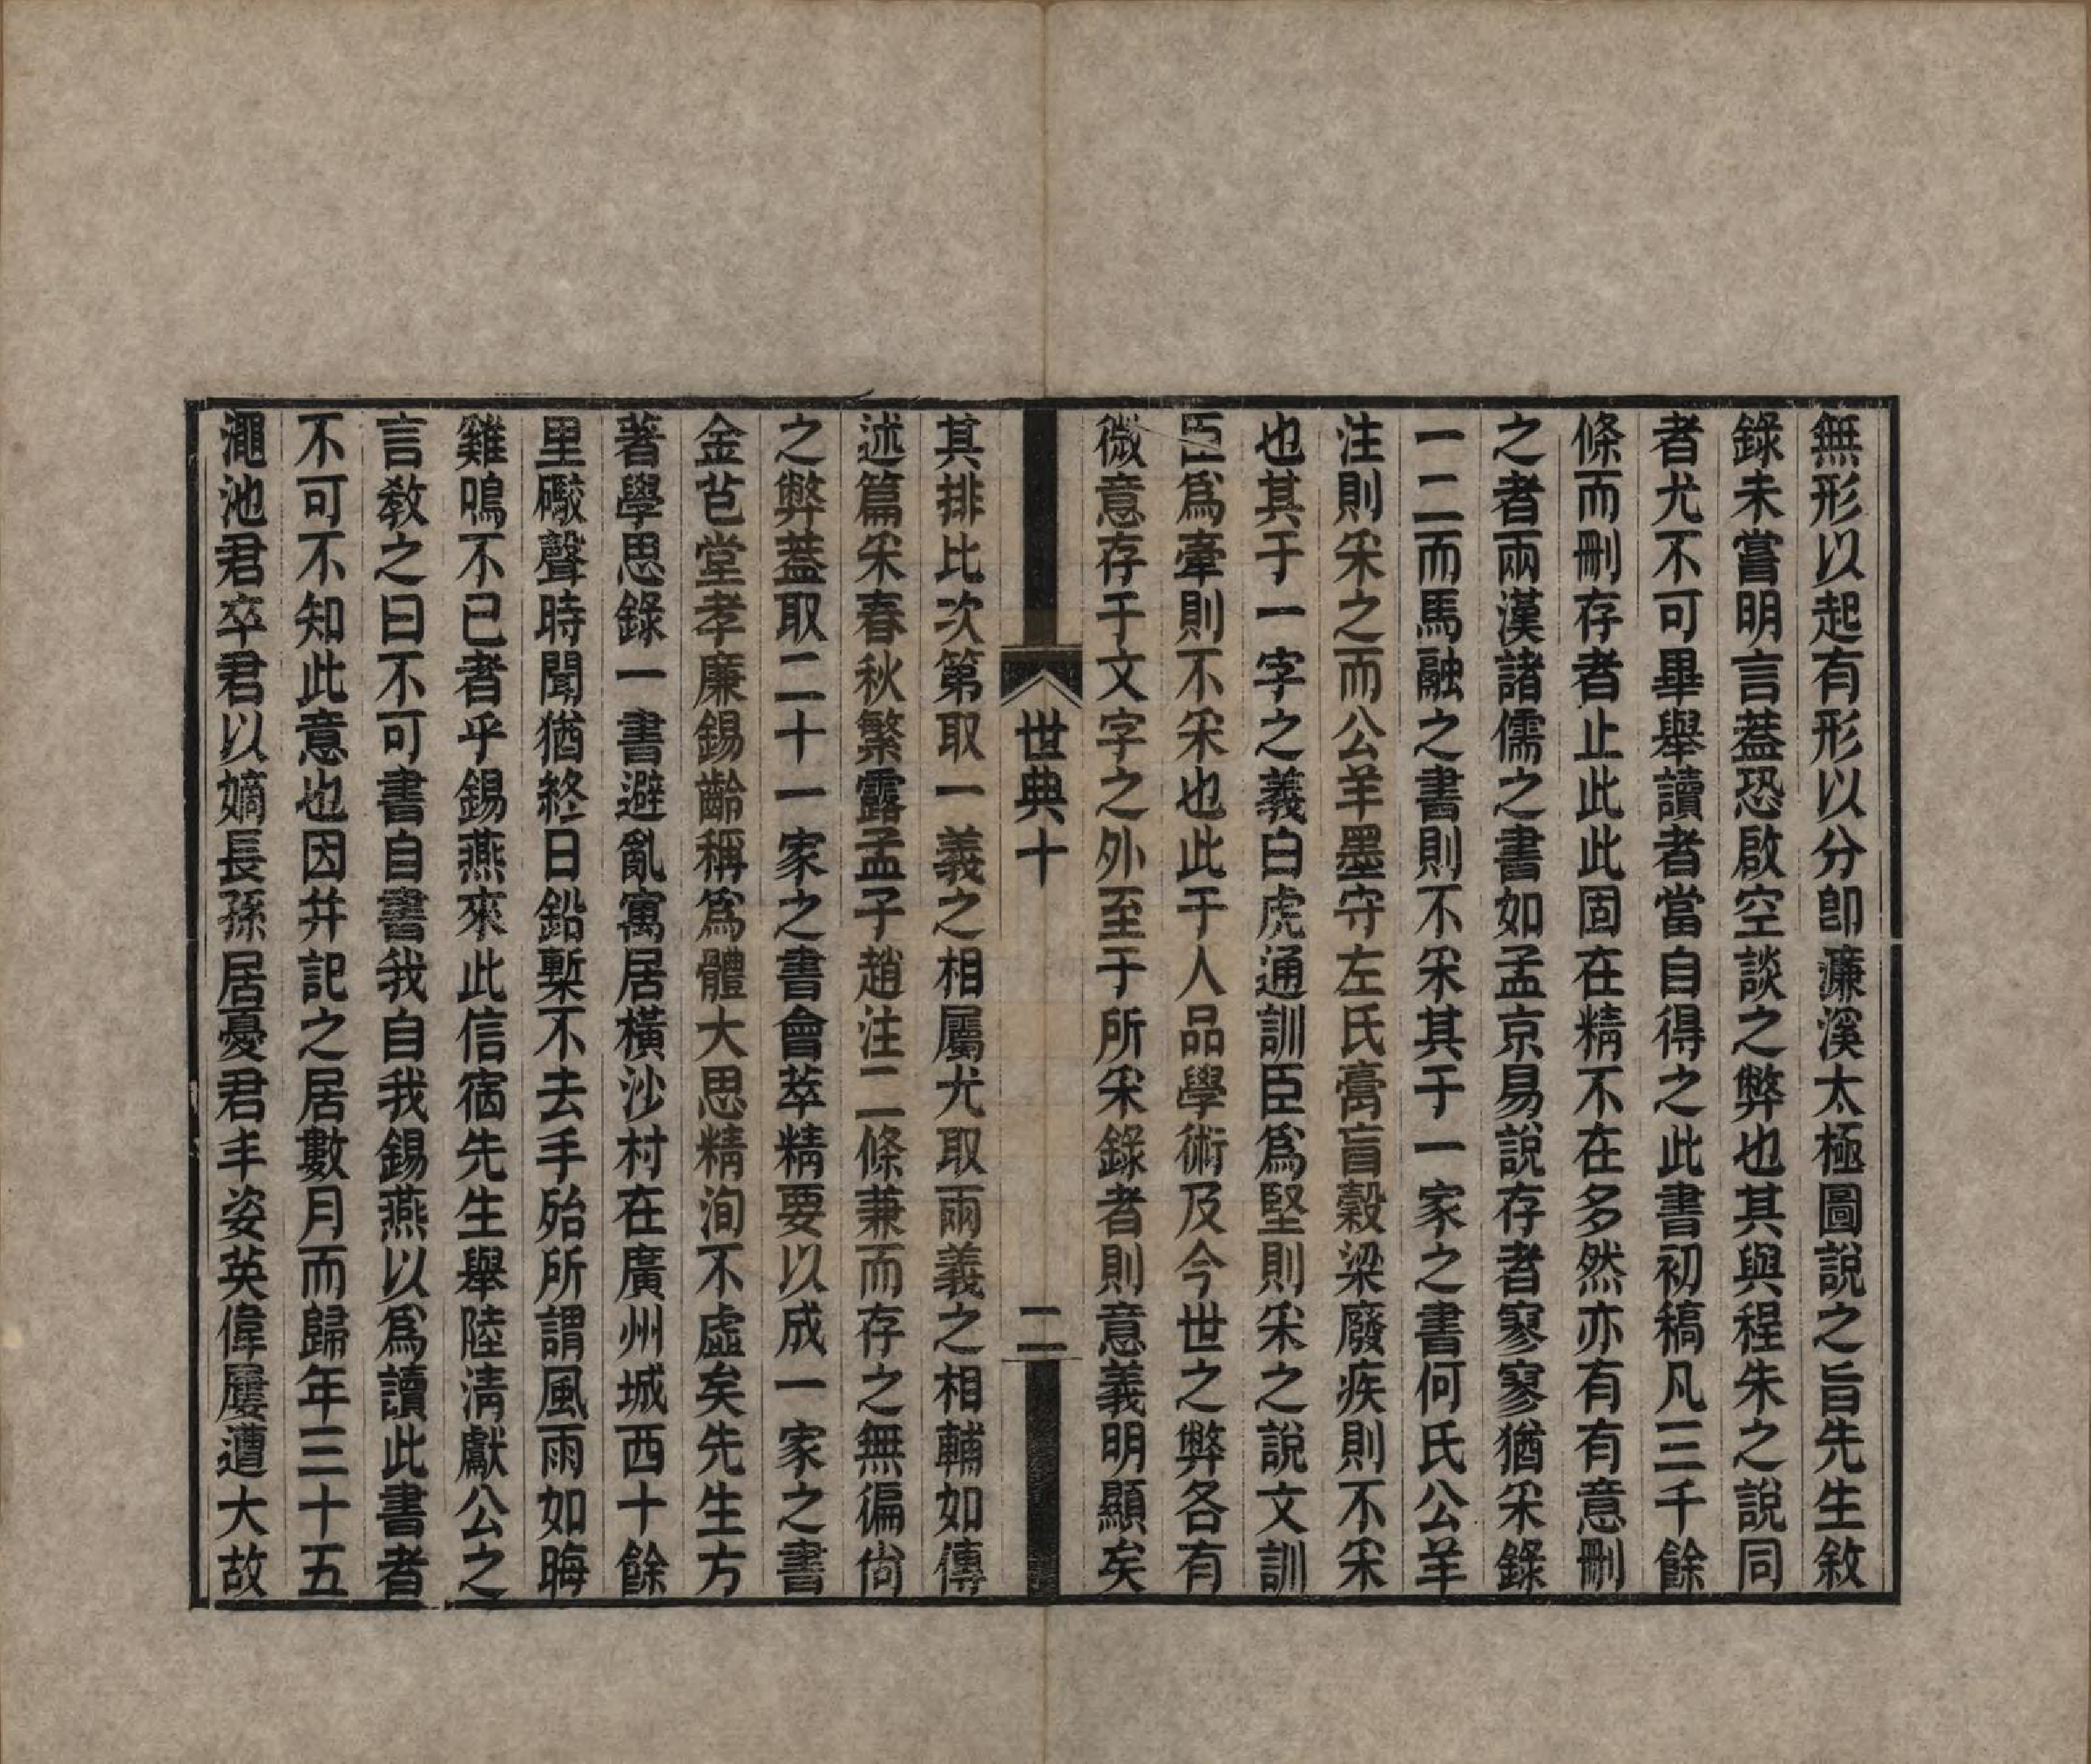 無形以起有形以分卽濂溪太極圖說之旨先生敘
錄未嘗明言蓋恐啟空談之弊也其與程朱之說同
者尤不可畢舉讀者當自得之此書初稿凡三千餘
條而刪存者止此此固在精不在多然亦有有意刪
之者兩漢諸儒之書如孟京易說存者寥寥猶采錄
一二而馬融之書則不采其于一家之書何氏公羊
注則采之而公羊墨守左氏膏盲穀梁廢疾則不采
也其于一字之義白虎通訓臣爲堅則采之說文訓
臣爲牽則不采也此于人品學術及今世之弊各有
微意存于文字之外至于所采錄者則意義明顯矣
世典十 二
其排比次第取一義之相屬尤取兩義之相輔如傳
述篇采春秋繁露孟子趙注二條兼而存之無徧尙
之弊蓋取二十一家之書會萃精要以成一家之書
金芑堂孝廉錫齡稱爲體大思精洵不虛矣先生方
著學思錄一書避亂寓居橫沙村在廣州城西十餘
里礮聲時聞猶終日鉛槧不去手殆所謂風雨如晦
雞鳴不已者乎錫燕來此信宿先生舉陸淸獻公之
言教之曰不可書自書我自我錫燕以爲讀此書者
不可不知此意也因幷記之居數月而歸年三十五
澠池君卒君以嫡長孫居憂君丰姿英偉屢遭大故